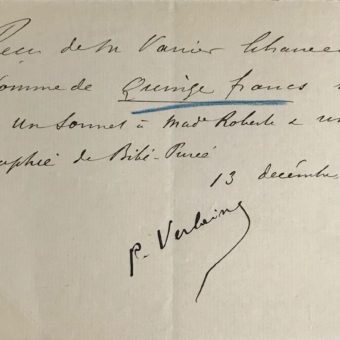 Reçu de M Vanier Chanee
somme de Quinze francs
un sonnet à Made Robert & un
raphie de Bibi-Purée
13 décembre
P. Verlaine